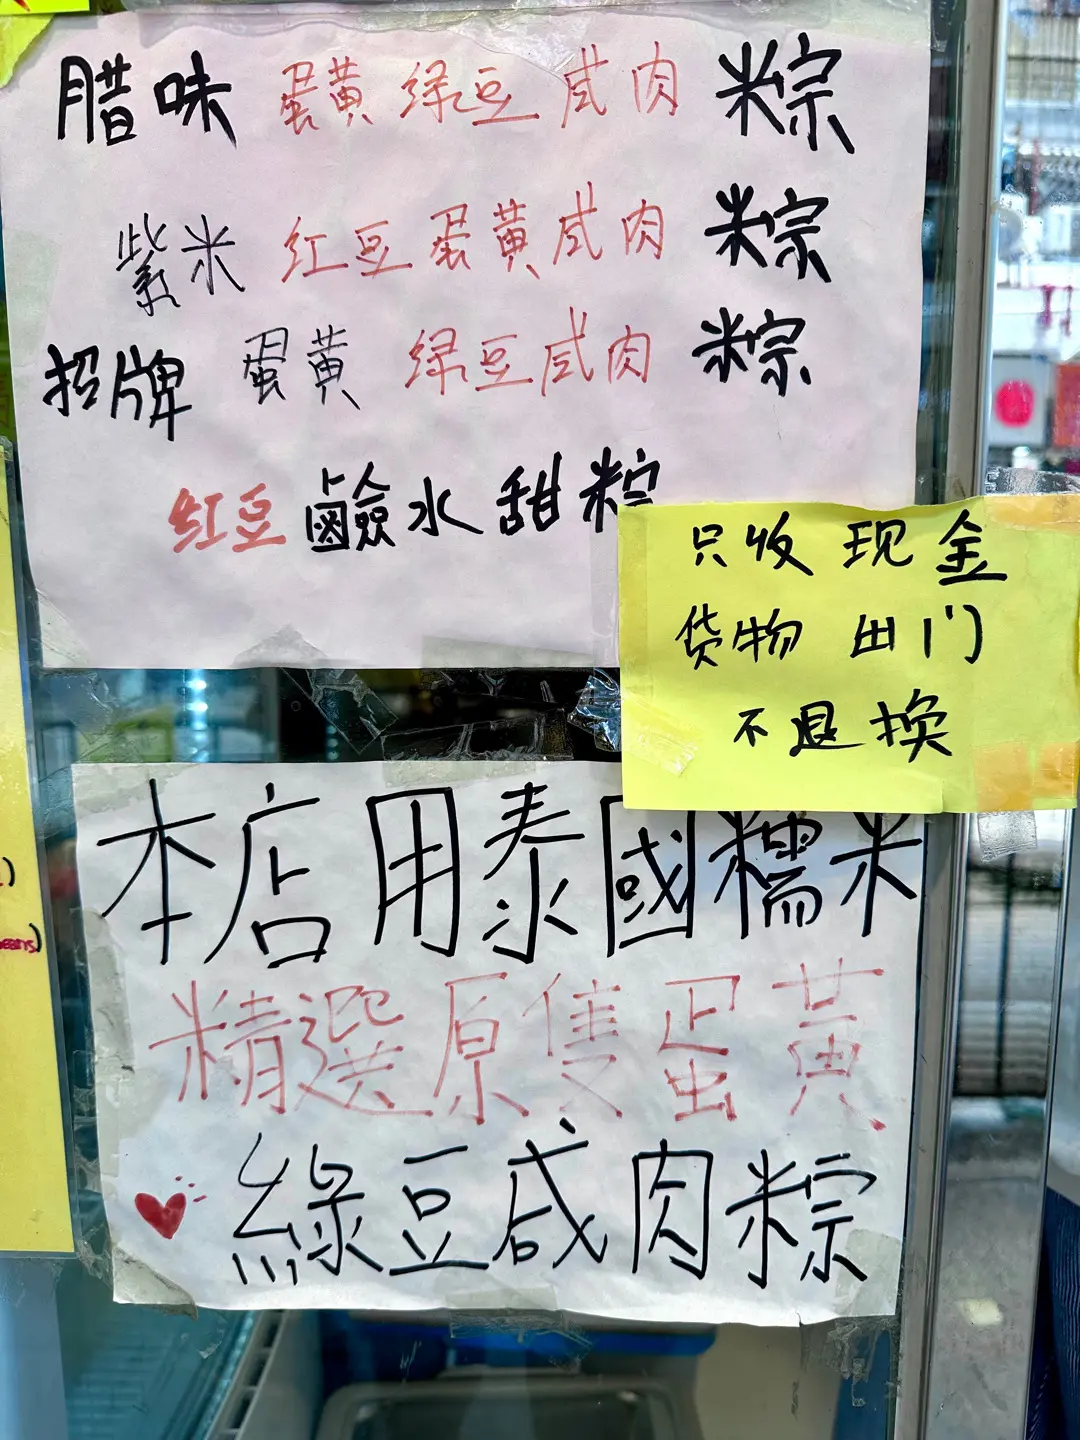 腊味 蛋黄 绿豆 咸肉 粽
紫米 红豆 蛋黄 咸肉 粽
招牌 蛋黄 绿豆 咸肉 粽
红豆 鹼水 甜粽
只收 现金
货物 出门
不退换
本店 用泰國糯米
精選原隻蛋黃
綠豆咸肉粽